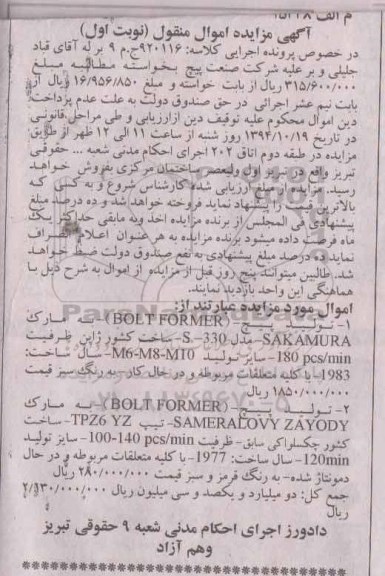 م الف ۱۵۱۲۸
آگهی مزایده اموال منقول (نوبت اول)
در خصوص پرونده اجرایی کلاسه: ۹۲۰۱۱۶ج.م ۹ بر له آقای قباد
جلیلی و بر علیه شرکت صنعت پیچ بخواسته مطالبه مبلغ
۳۱۵/۶۰۰/۰۰۰ ریال از بابت خواسته و مبلغ ۱۶/۹۵۶/۸۵۰ ریال از
بابت نیم عشر اجرائی در حق صندوق دولت به علت عدم پرداخت
دین اموال محکوم علیه توقیف دین ازارزیابی و طی مراحل قانونی
در تاریخ ۱۳۹۴/۱۰/۱۹ روز شنبه از ساعت ۱۱ الی ۱۲ ظهر از طریق
مزایده در طبقه دوم اتاق ۲۰۲ اجرای احکام مدنی شعبه ... حقوقی
تبریز واقع در تبریز اول ولیعصر ساختمان مرکزی بفروش خواهد
رسید. مزایده از مبلغ ارزیابی شده کارشناس شروع و به کسی که
بالاترین قیمت را پیشنهاد نماید فروخته خواهد شد و ده درصد مبلغ
پیشنهادی فی المجلس از برنده مزایده اخذ وبه مابقی حداکثر یک
ماه فرصت داده میشود برنده مزایده به هر عنوان اعلام انصراف
نماید ده درصد مبلغ پیشنهادی به نفع صندوق دولت ضبط خواهد
شد. طالبین میتوانند پنج روز قبل از مزایده از اموال به شرح ذیل با
هماهنگی این واحد بازدید نمایند.
اموال مورد مزایده عبارتند از:
۱- تولید پیچ- (BOLT FORMER) به مارک
SAKAMURA-مدل S-330- ساخت کشور ژاپن ظرفیت
180 pcs/min- سایز تولید M6-M8-MT0-سال ساخت:
1983- با کلیه متعلقات مربوطه و در حال کار- به رنگ سبز قیمت
۱/۸۵۰/۰۰۰/۰۰۰ ریال
۲- تولید پیچ- (BOLT FORMER) به مارک
SAMERALOVY ZAYODY- تیپ TPZ6 YZ- ساخت
کشور چکسلواکی سابق- ظرفیت 100-140 pcs/min- سایز تولید
120min- سال ساخت: 1977- با کلیه متعلقات مربوطه و در حال
دمونتاژ شده- به رنگ قرمز و سبز قیمت ۲۸۰/۰۰۰/۰۰۰ ریال
جمع کل: دو میلیارد و یکصد و سی میلیون ریال ۲/۱۳۰/۰۰۰/۰۰۰
ریال
دادورز اجرای احکام مدنی شعبه ۹ حقوقی تبریز
وهم آزاد